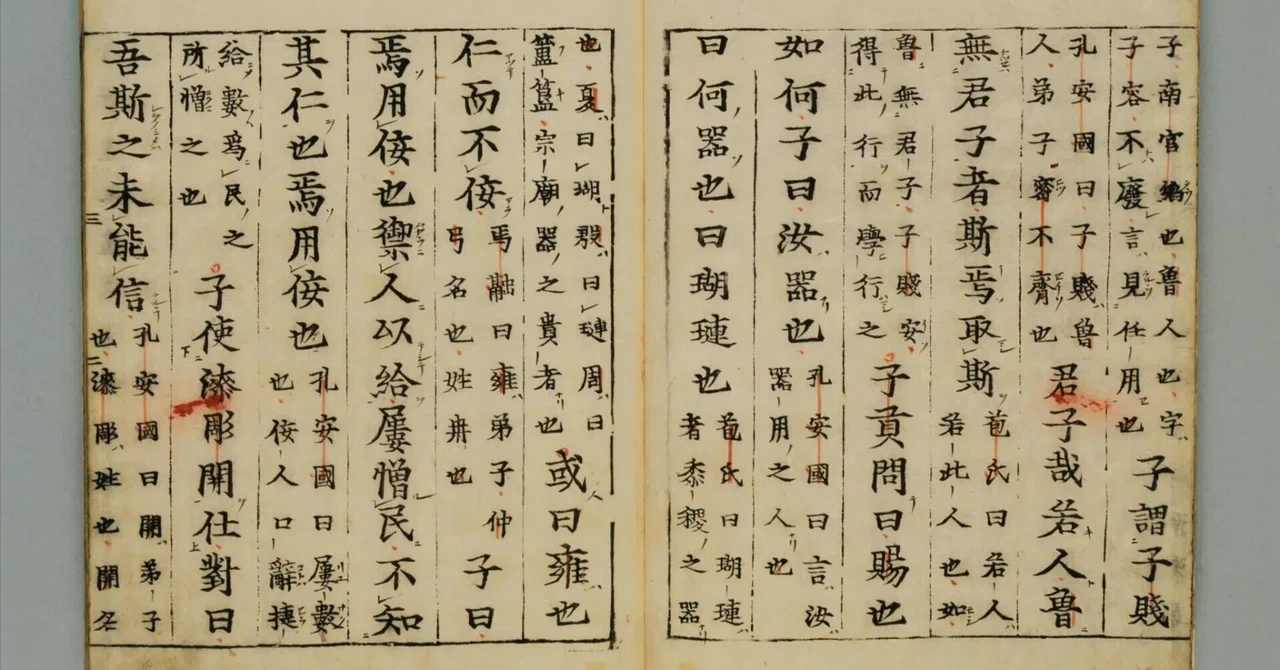 子南官縚也魯人也字
子容不癈言見任用也
子謂子賤
孔安國曰子賤魯
人弟子密不齊也
君子哉若人魯
無君子者斯焉取斯
苞氏曰若人
若此人也如
魯無君子子賤安
得此行而學行之
子貢問曰賜也
如何子曰汝器也
孔安國曰言汝
器用之人也
曰何器也曰瑚璉也
苞氏曰瑚璉
者黍稷之器
也夏曰瑚殷曰璉周曰
簠簋宗廟器之貴者也
或曰雍也
仁而不佞
馬融曰雍弟子仲
弓名也姓冉也
子曰
焉用佞也禦人以給屢憎民不知
其仁也焉用佞也
孔安國曰屢數
也佞人口辭捷
給數爲民之
所憎之也
子使漆彫開仕對曰
吾斯之未能信
孔安國曰開弟子
也漆彫姓也開名